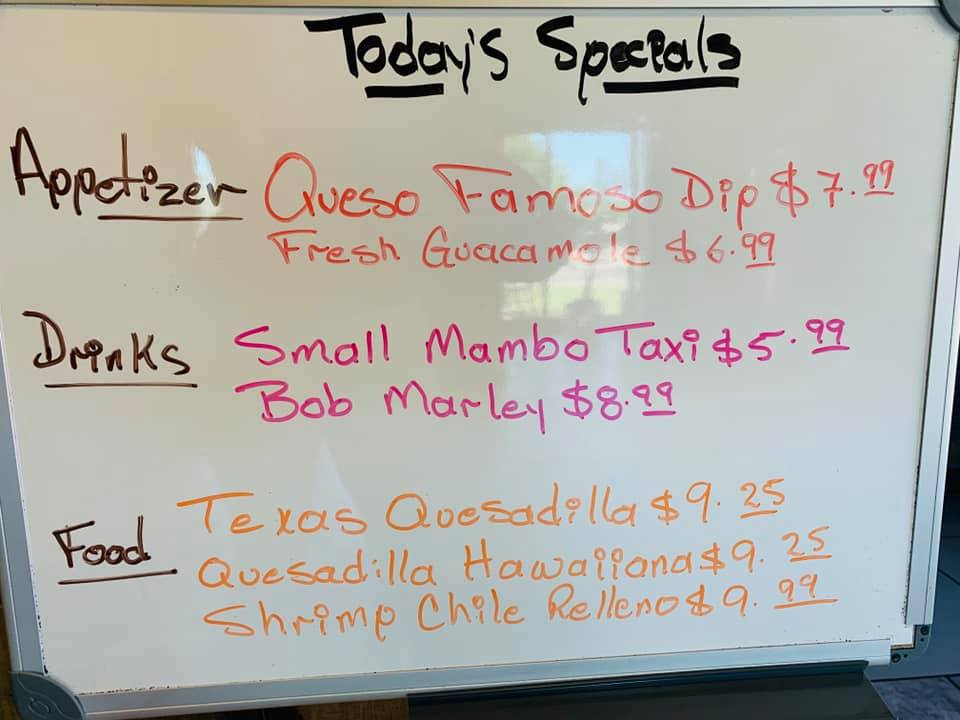 Today's Specials
Appetizer Queso Famoso Dip $7.99
Fresh Guacamole $6.99
Drinks Small Mambo Taxi $5.99
Bob Marley $8.99
Texas Quesadilla $9.25
Food Quesadilla Hawaiiana $9.25
Shrimp Chile Relleno $9.99